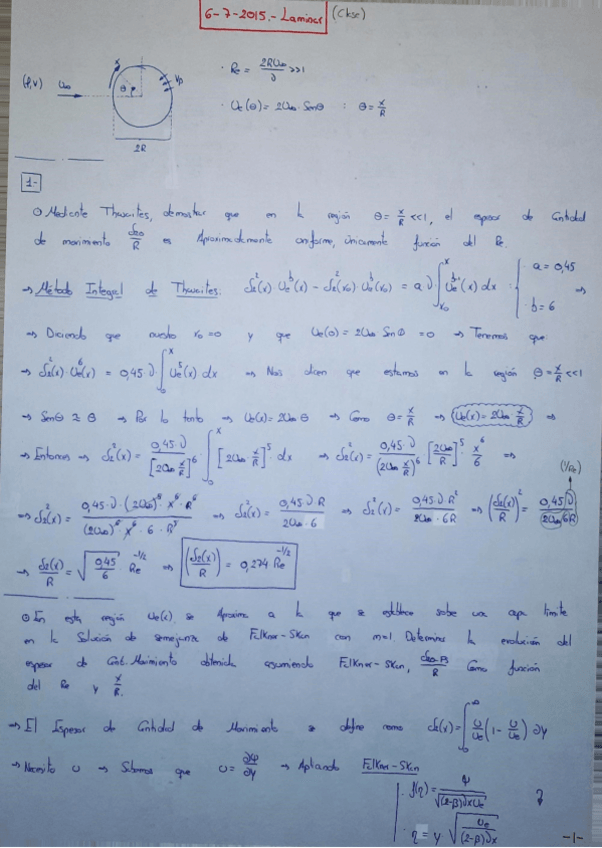 6-7-2015.- Laminar (Clase)
(ρ,ν) U∞
x
θ
R
2R
· Re = 2RU∞/ν >>1
· Ue(θ) = 2U∞·Senθ : θ = x/R
1-
⊙ Mediante Thwaites, demostrar que en la región θ = x/R <<1, el espesor de Cantidad
de movimiento δ2(x)/R es Aproximadamente uniforme, únicamente función del Re.
→ Método Integral de Thwaites: δ2²(x) Ue^b(x) - δ2²(x0) Ue^b(x0) = a ν ∫ Ue^(b-1)(x) dx · a = 0,45 · b = 6 ⇒
→ Diciendo que nuestro x0 = 0 y que Ue(0) = 2U∞ Sen 0 = 0 → Tenemos que:
→ δ2²(x)·Ue⁶(x) = 0,45 ν ∫ Ue⁵(x) dx → Nos dicen que estamos en la región θ = x/R <<1
→ Senθ ≈ θ → Por lo tanto → Ue(x) = 2U∞ θ → Como θ = x/R ⇒ Ue(x) = 2U∞ x/R ⇒
→ Entonces → δ2²(x) = 0,45 ν/[2U∞ x/R]⁶ · ∫ [2U∞ · x/R]⁵ · dx ⇒ δ2²(x) = 0,45 ν/(2U∞ x/R)⁶ [2U∞/R]⁵ · x⁶/6 ⇒
⇒ δ2²(x) = 0,45·ν·(2U∞)⁵·x⁶·R⁶/(2U∞)⁶·x⁶·6·R⁵ ⇒ δ2²(x) = 0,45 ν R/2U∞·6 ⇒ δ2²(x) = 0,45·ν R²/2U∞·6R ⇒ (δ2(x)/R)² = 0,45 ν/2U∞ 6R (1/Re)
→ δ2(x)/R = √(0,45/6) Re^(-1/2) ⇒ (δ2(x)/R) = 0,274 Re^(-1/2)
⊙ En esta región Ue(x), se Aproxima a la que se establece sobre una capa límite
en la Solución de semejanza de Falkner-Skan con m=1. Determina la evolución del
espesor de Cant. Movimiento obtenida asumiendo Falkner-Skan, como función
del Re y x/R.
→ El Espesor de Cantidad de Movimiento se define como δ2(x) = ∫ U/Ue (1 - U/Ue) ∂y
→ Necesito U → Sabemos que U = ∂Ψ/∂y → Aplicando Falkner-Skan
· f(η) = Ψ/√((2-β)νxUe)
· η = y √(Ue/(2-β)νx)
-1-